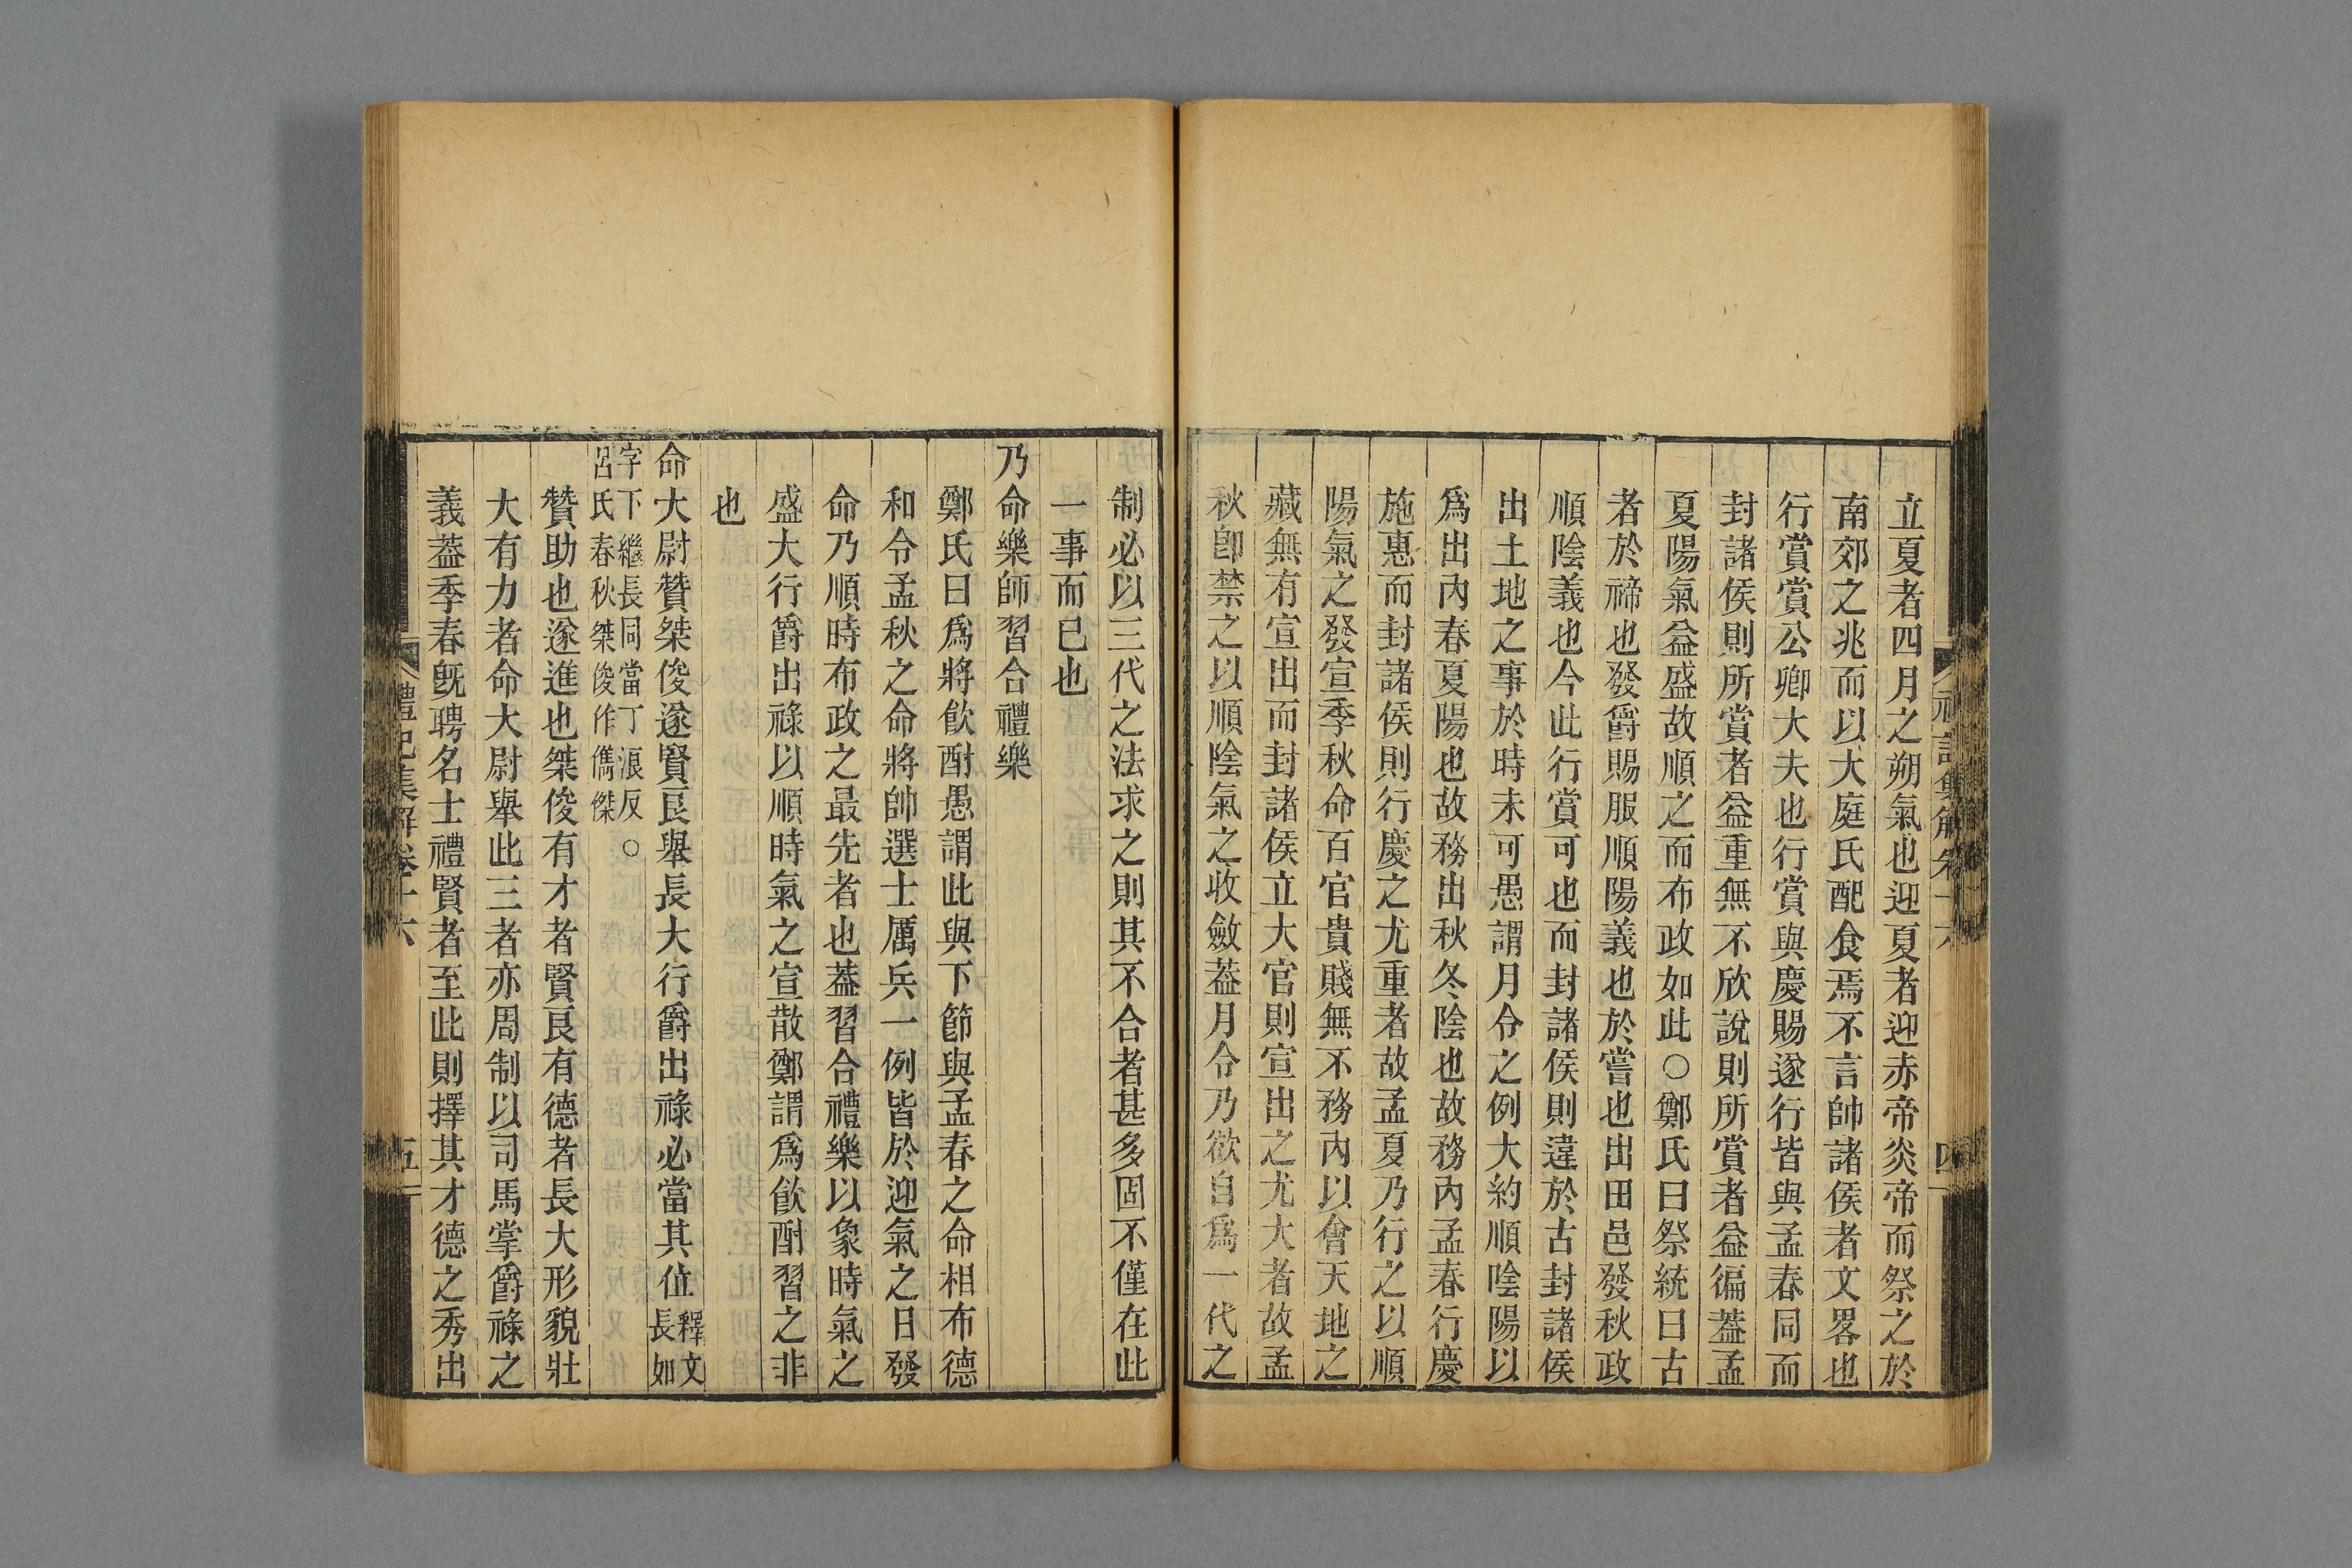 立夏者四月之朔氣也迎夏者迎赤帝炎帝而祭之於
南郊之兆而以大庭氏配食焉不言帥諸侯者文畧也
行賞賞公卿大夫也行賞與慶賜遂行皆與孟春同而
封諸侯則所賞者益重無不欣說則所賞者益徧蓋孟
夏陽氣益盛故順之而布政如此○鄭氏曰祭統曰古
者於禘也發爵賜服順陽義也於嘗也出田邑發秋政
順陰義也今此行賞可也而封諸侯則違於古封諸侯
出土地之事於時未可愚謂月令之例大約順陰陽以
爲出內春夏陽也故務出秋冬陰也故務內孟春行慶
施惠而封諸侯則行慶之尤重者故孟夏乃行之以順
陽氣之發宣季秋命百官貴賤無不務內以會天地之
藏無有宣出而封諸侯立大官則宣出之尤大者故孟
秋卽禁之以順陰氣之收斂蓋月令乃欲自爲一代之
制必以三代之法求之則其不合者甚多固不僅在此
一事而已也
乃命樂師習合禮樂
鄭氏曰爲將飲酎愚謂此與下節與孟春之命相布德
和令孟秋之命將帥選士厲兵一例皆於迎氣之日發
命乃順時布政之最先者也蓋習合禮樂以象時氣之
盛大行爵出祿以順時氣之宣散鄭謂爲飲酎習之非
也
命大尉贊桀俊遂賢良舉長大行爵出祿必當其位釋文長如
字下繼長同當丁浪反○呂氏春秋桀俊作儁傑
贊助也遂進也桀俊有才者賢良有德者長大形貌壯
大有力者命大尉舉此三者亦周制以司馬掌爵祿之
義蓋季春旣聘名士禮賢者至此則擇其才德之秀出
禮記集解卷十六
五
四